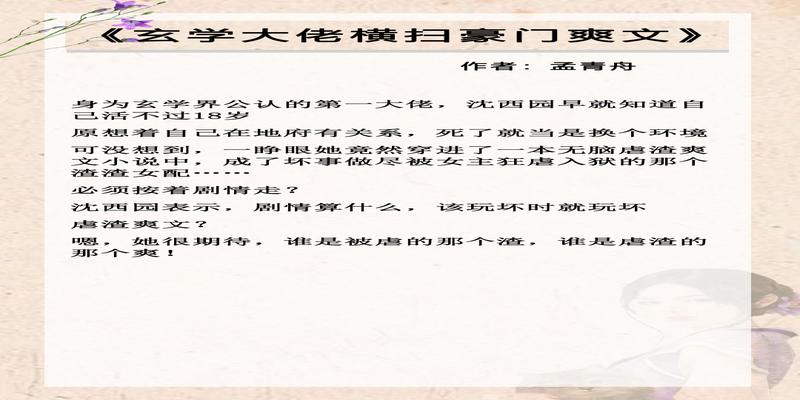 《玄学大佬横扫豪门爽文》
作者：孟青舟
身为玄学界公认的第一大佬，沈西园早就知道自
己活不过18岁
原想着自己在地府有关系，死了就当是换个环境
可没想到，一睁眼她竟然穿进了一本无脑虐渣爽
文小说中，成了坏事做尽被女主狂虐入狱的那个
渣渣女配……
必须按着剧情走？
沈西园表示，剧情算什么，该玩坏时就玩坏
虐渣爽文？
嗯，她很期待，谁是被虐的那个渣，谁是虐渣的
那个爽！